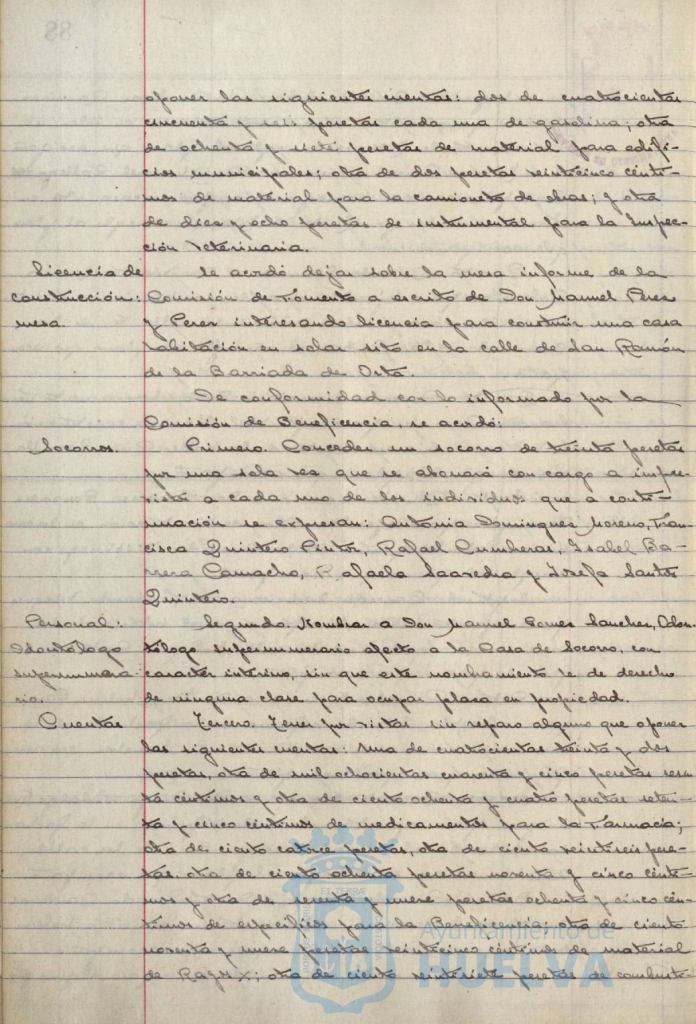 oponer las siguientes cuentas: dos de cuatrocientas
cincuenta y seis pesetas cada una de gasolina; otra
de ochenta y siete pesetas de material para edifi-
cios municipales; otra de dos pesetas veinticinco cénti-
mos de material para la camioneta de obras; y otra
de diez y ocho pesetas de instrumental para la Inspec-
ción Veterinaria.
Licencia de
construcción:
mesa.
Se acordó dejar sobre la mesa informe de la
Comisión de Fomento a escrito de Don Manuel Perez
y Perez interesando licencia para construir una casa
habitación en solar sito en la calle de San Ramón
de la Barriada de Orta.
De conformidad con lo informado por la
Comisión de Beneficencia, se acordó:
Socorros.
Primero. Conceder un socorro de treinta pesetas
por una sola vez que se abonará con cargo a impre-
vistos a cada uno de los individuos que a conti-
nuación se expresan: Antonia Dominguez Moreno, Fran-
cisca Quintero Pintor, Rafael Cumbreras, Isabel Ba-
rrera Camacho, Rafaela Saavedra y Josefa Santos
Quintero.
Personal:
Odontólogo
supernumera-
rio.
Segundo. Nombrar a Don Manuel Gomez Sanchez, Odon-
tólogo supernumerario afecto a la Casa de Socorro, con
caracter interino, sin que este nombramiento le de derecho
de ninguna clase para ocupar plaza en propiedad.
Cuentas
Tercero. Tener por vistas sin reparo alguno que oponer
las siguientes cuentas: Una de cuatrocientas treinta y dos
pesetas, otra de mil ochocientas cuarenta y cinco pesetas sesen-
ta céntimos y otra de ciento ochenta y cuatro pesetas seten-
ta y cinco céntimos de medicamentos para la Farmacia;
otra de ciento catorce pesetas, otra de ciento veintiseis pese-
tas, otra de ciento ochenta pesetas noventa y cinco cénti-
mos y otra de sesenta y nueve pesetas ochenta y cinco cén-
timos de especificos para la Beneficencia; otra de ciento
noventa y nueve pesetas veinticinco céntimos de material
de Rayos X; otra de ciento veintisiete pesetas de combusti-
Ayuntamiento de
HUELVA